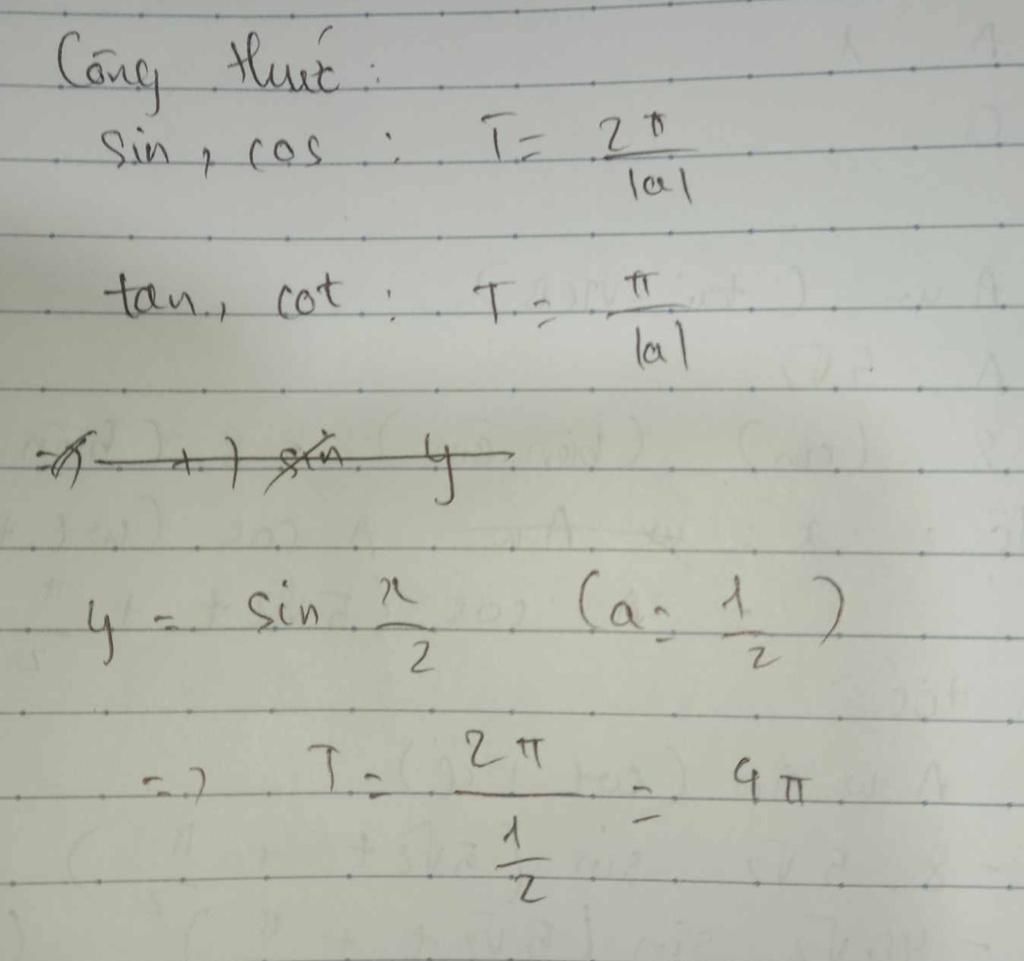 Công thức :
sin, cos : T = 2π/|a|
tan, cot : T = π/|a|
y = sin x/2 (a = 1/2)
=> T = 2π/(1/2) = 4π